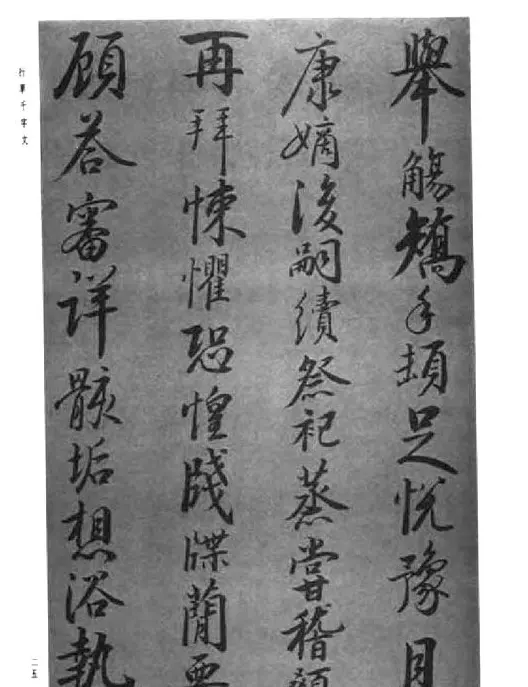 舉觴矯手頓足悅豫且
康嫡後嗣續祭祀蒸嘗稽顙
再拜悚懼恐惶牋牒簡要
顧荅審詳骸垢想浴執
行草千字文
二五